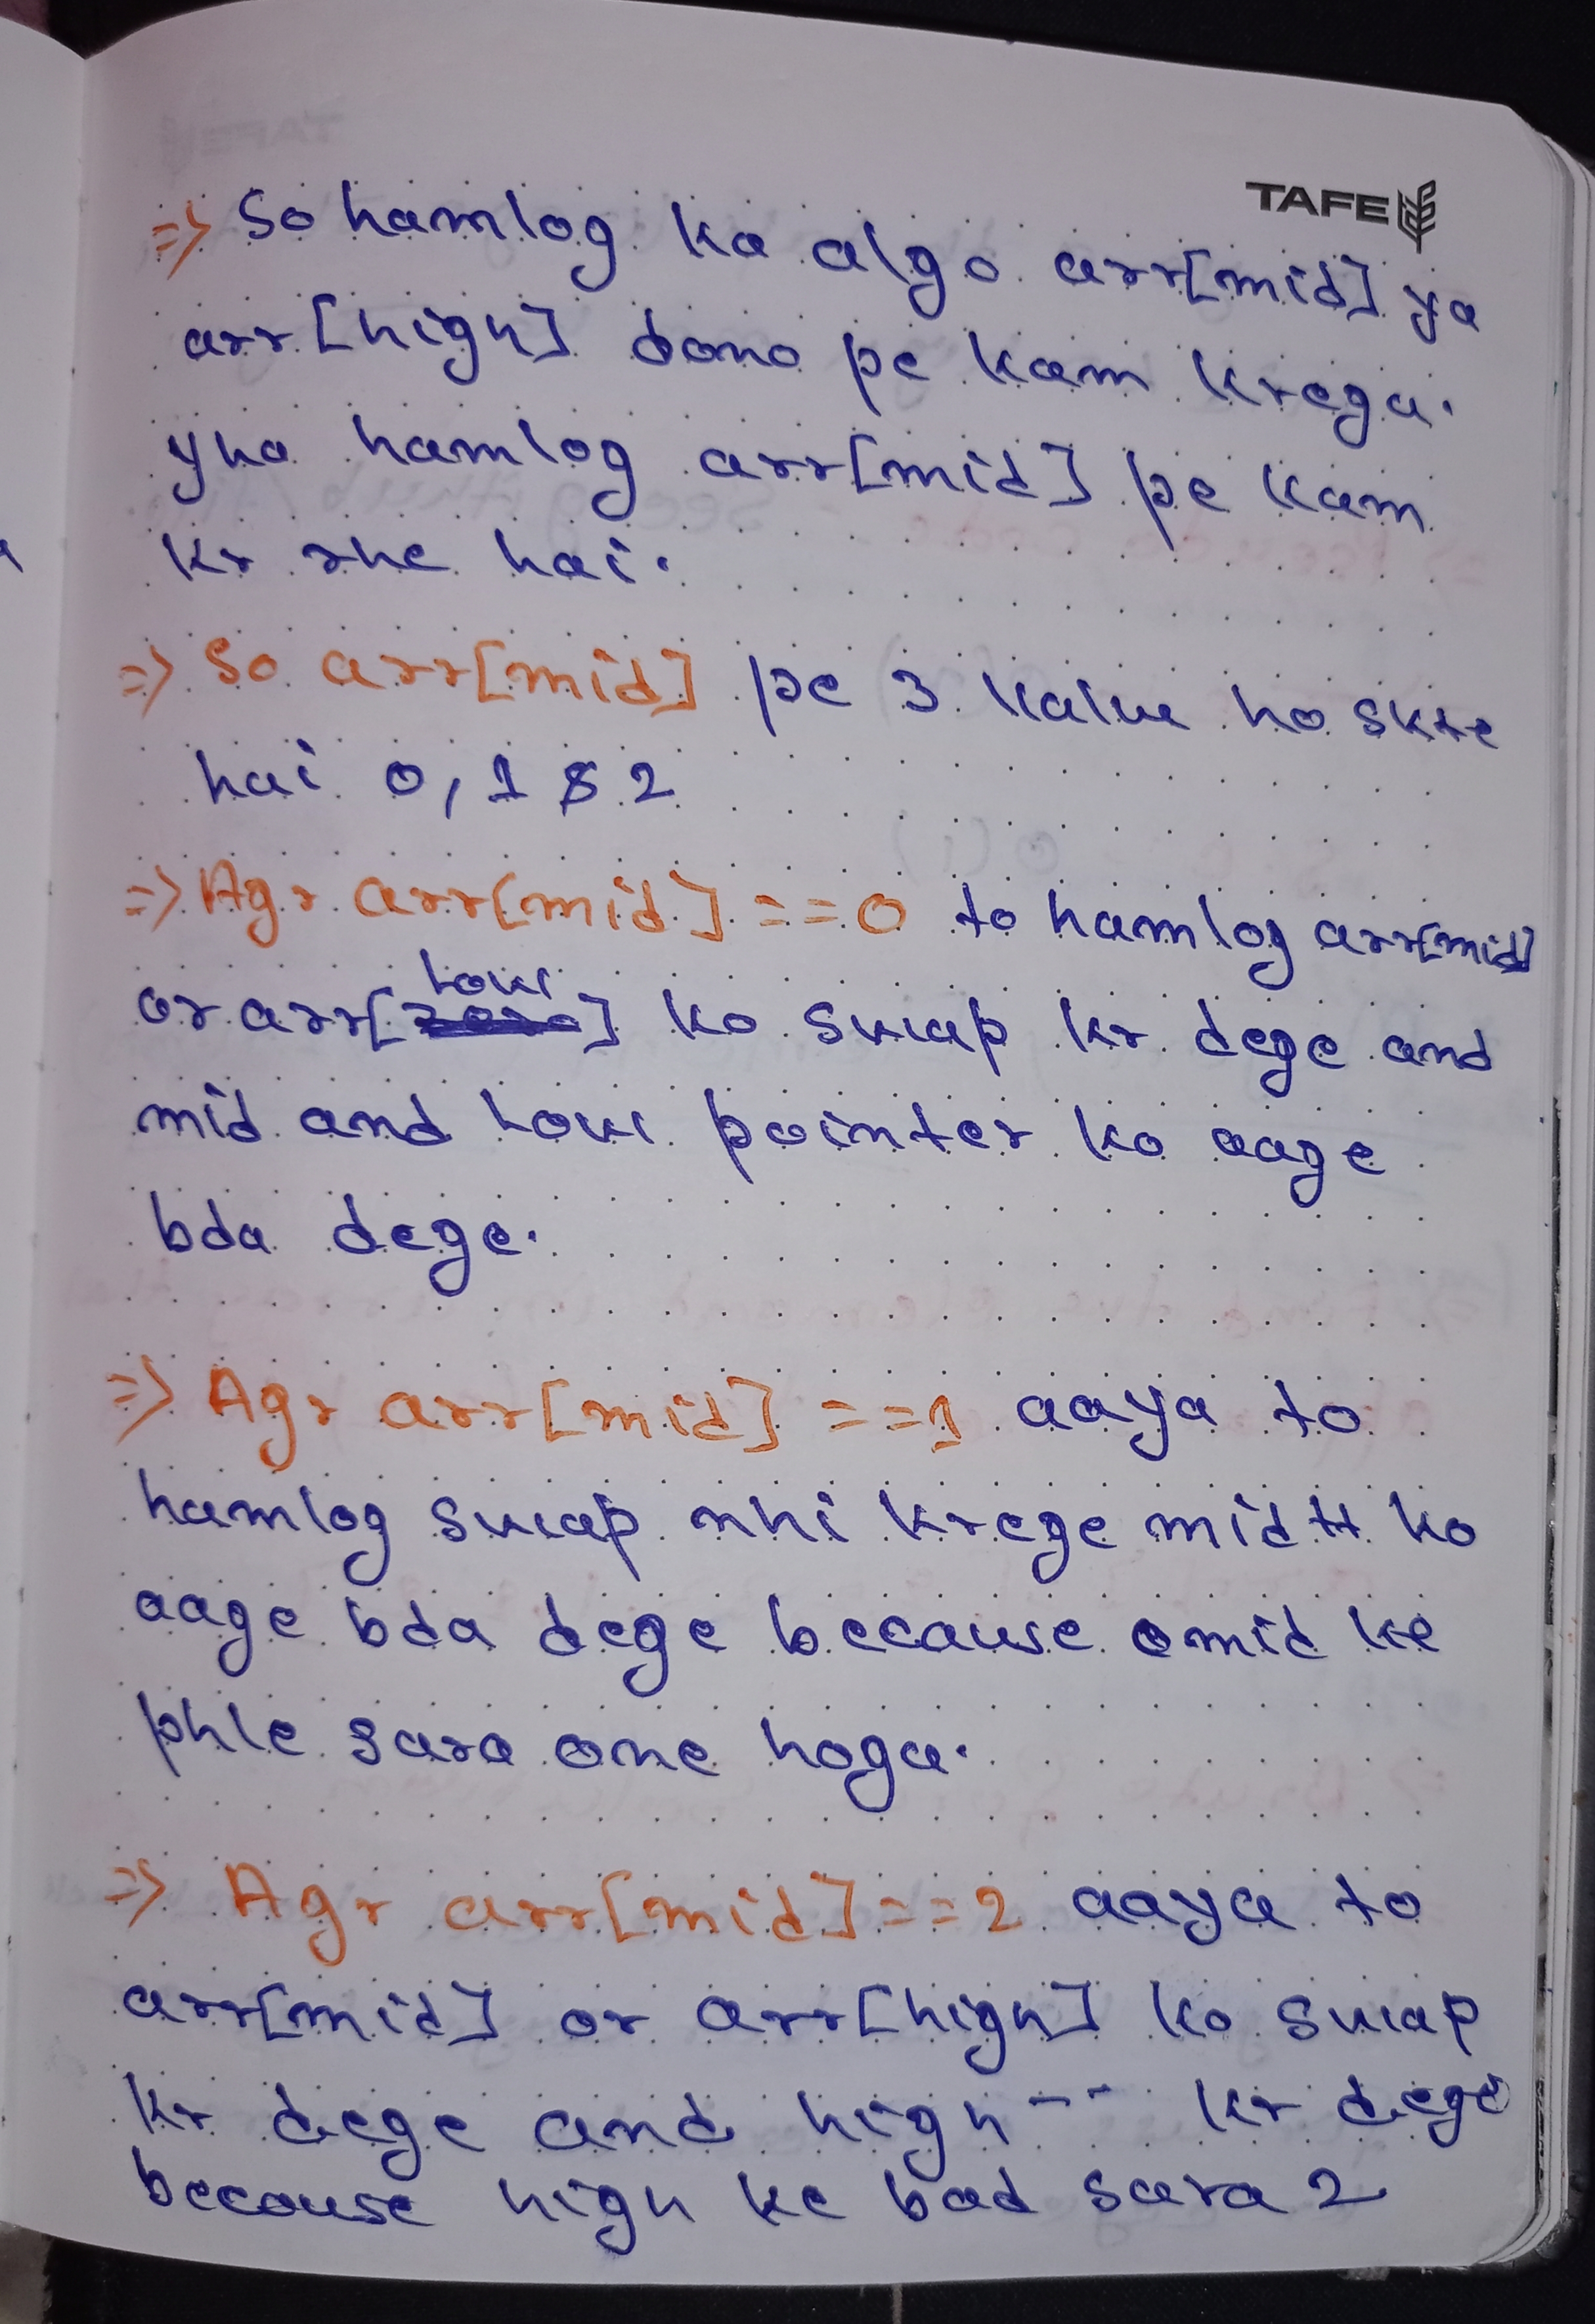 TAFE
=> So hamlog ka algo arr[mid] ya
arr[high] dono pe kam krega.
yha hamlog arr[mid] pe kam
kr rhe hai.
=> So arr[mid] pe 3 value ho skte
hai 0, 1 & 2
=> Agr arr[mid] == 0 to hamlog arr[mid]
low
or arr[] ko swap kr dege and
mid and low pointer ko aage
bda dege.
=> Agr arr[mid] == 1 aaya to
hamlog swap nhi krege mid++ ko
aage bda dege because mid ke
phle sara one hoga.
=> Agr arr[mid] == 2 aaya to
arr[mid] or arr[high] ko swap
kr dege and high-- kr dege
because high ke bad sara 2